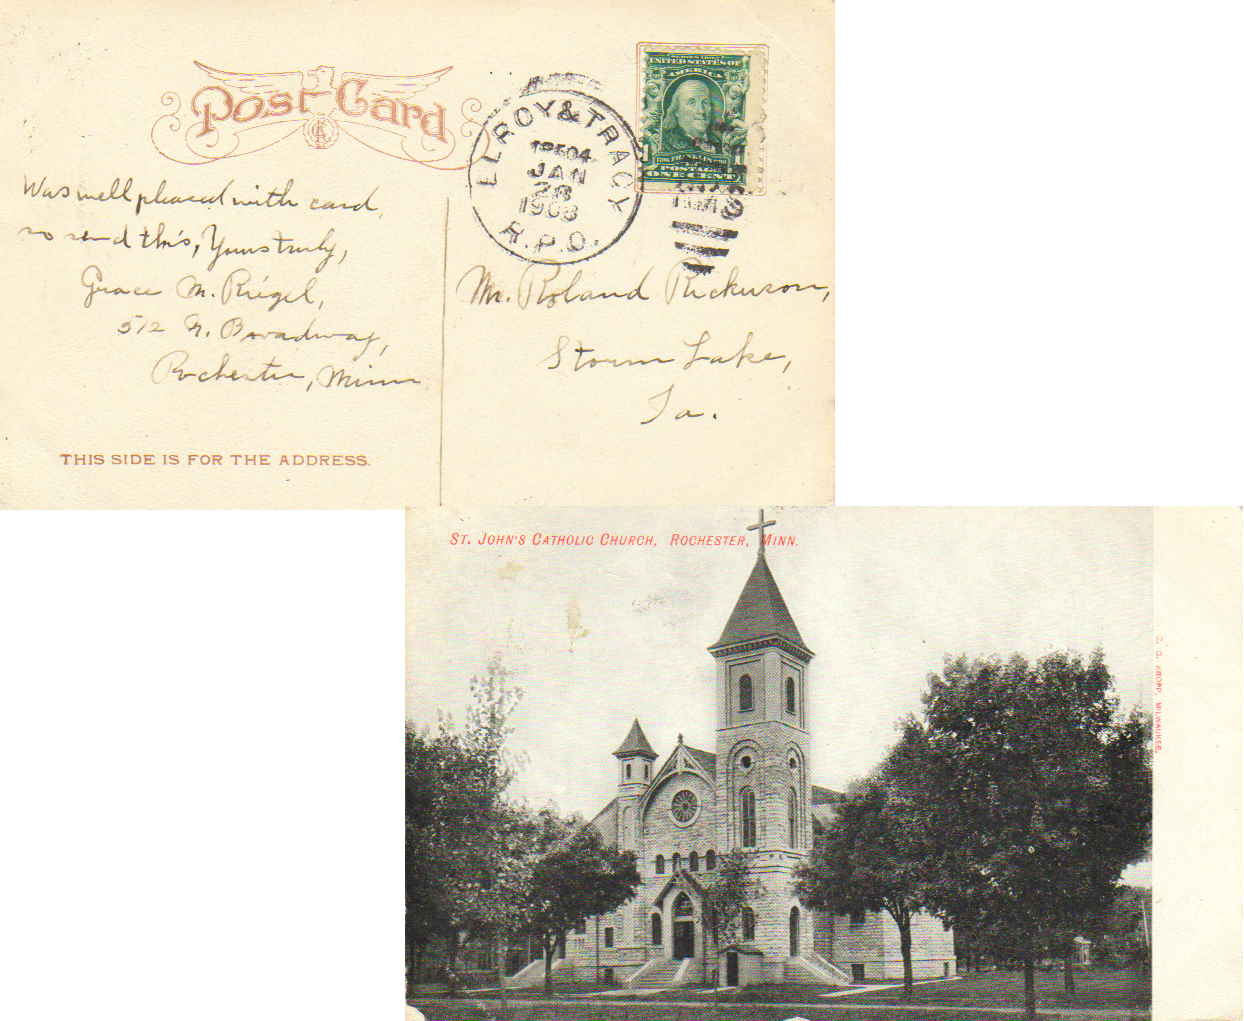 Post Card
UNITED STATES OF
AMERICA
POSTAGE
ONE CENT
ELROY & TRACY
JAN
28
1908
R.P.O.
Was well pleased with card,
so send this, Yours truly,
Grace M. Riegel,
512 N. Broadway,
Rochester, Minn
Mr. Roland Rickerson,
Storm Lake,
Ia.
THIS SIDE IS FOR THE ADDRESS.
ST. JOHN'S CATHOLIC CHURCH, ROCHESTER, MINN.
KROPP, MILWAUKEE.